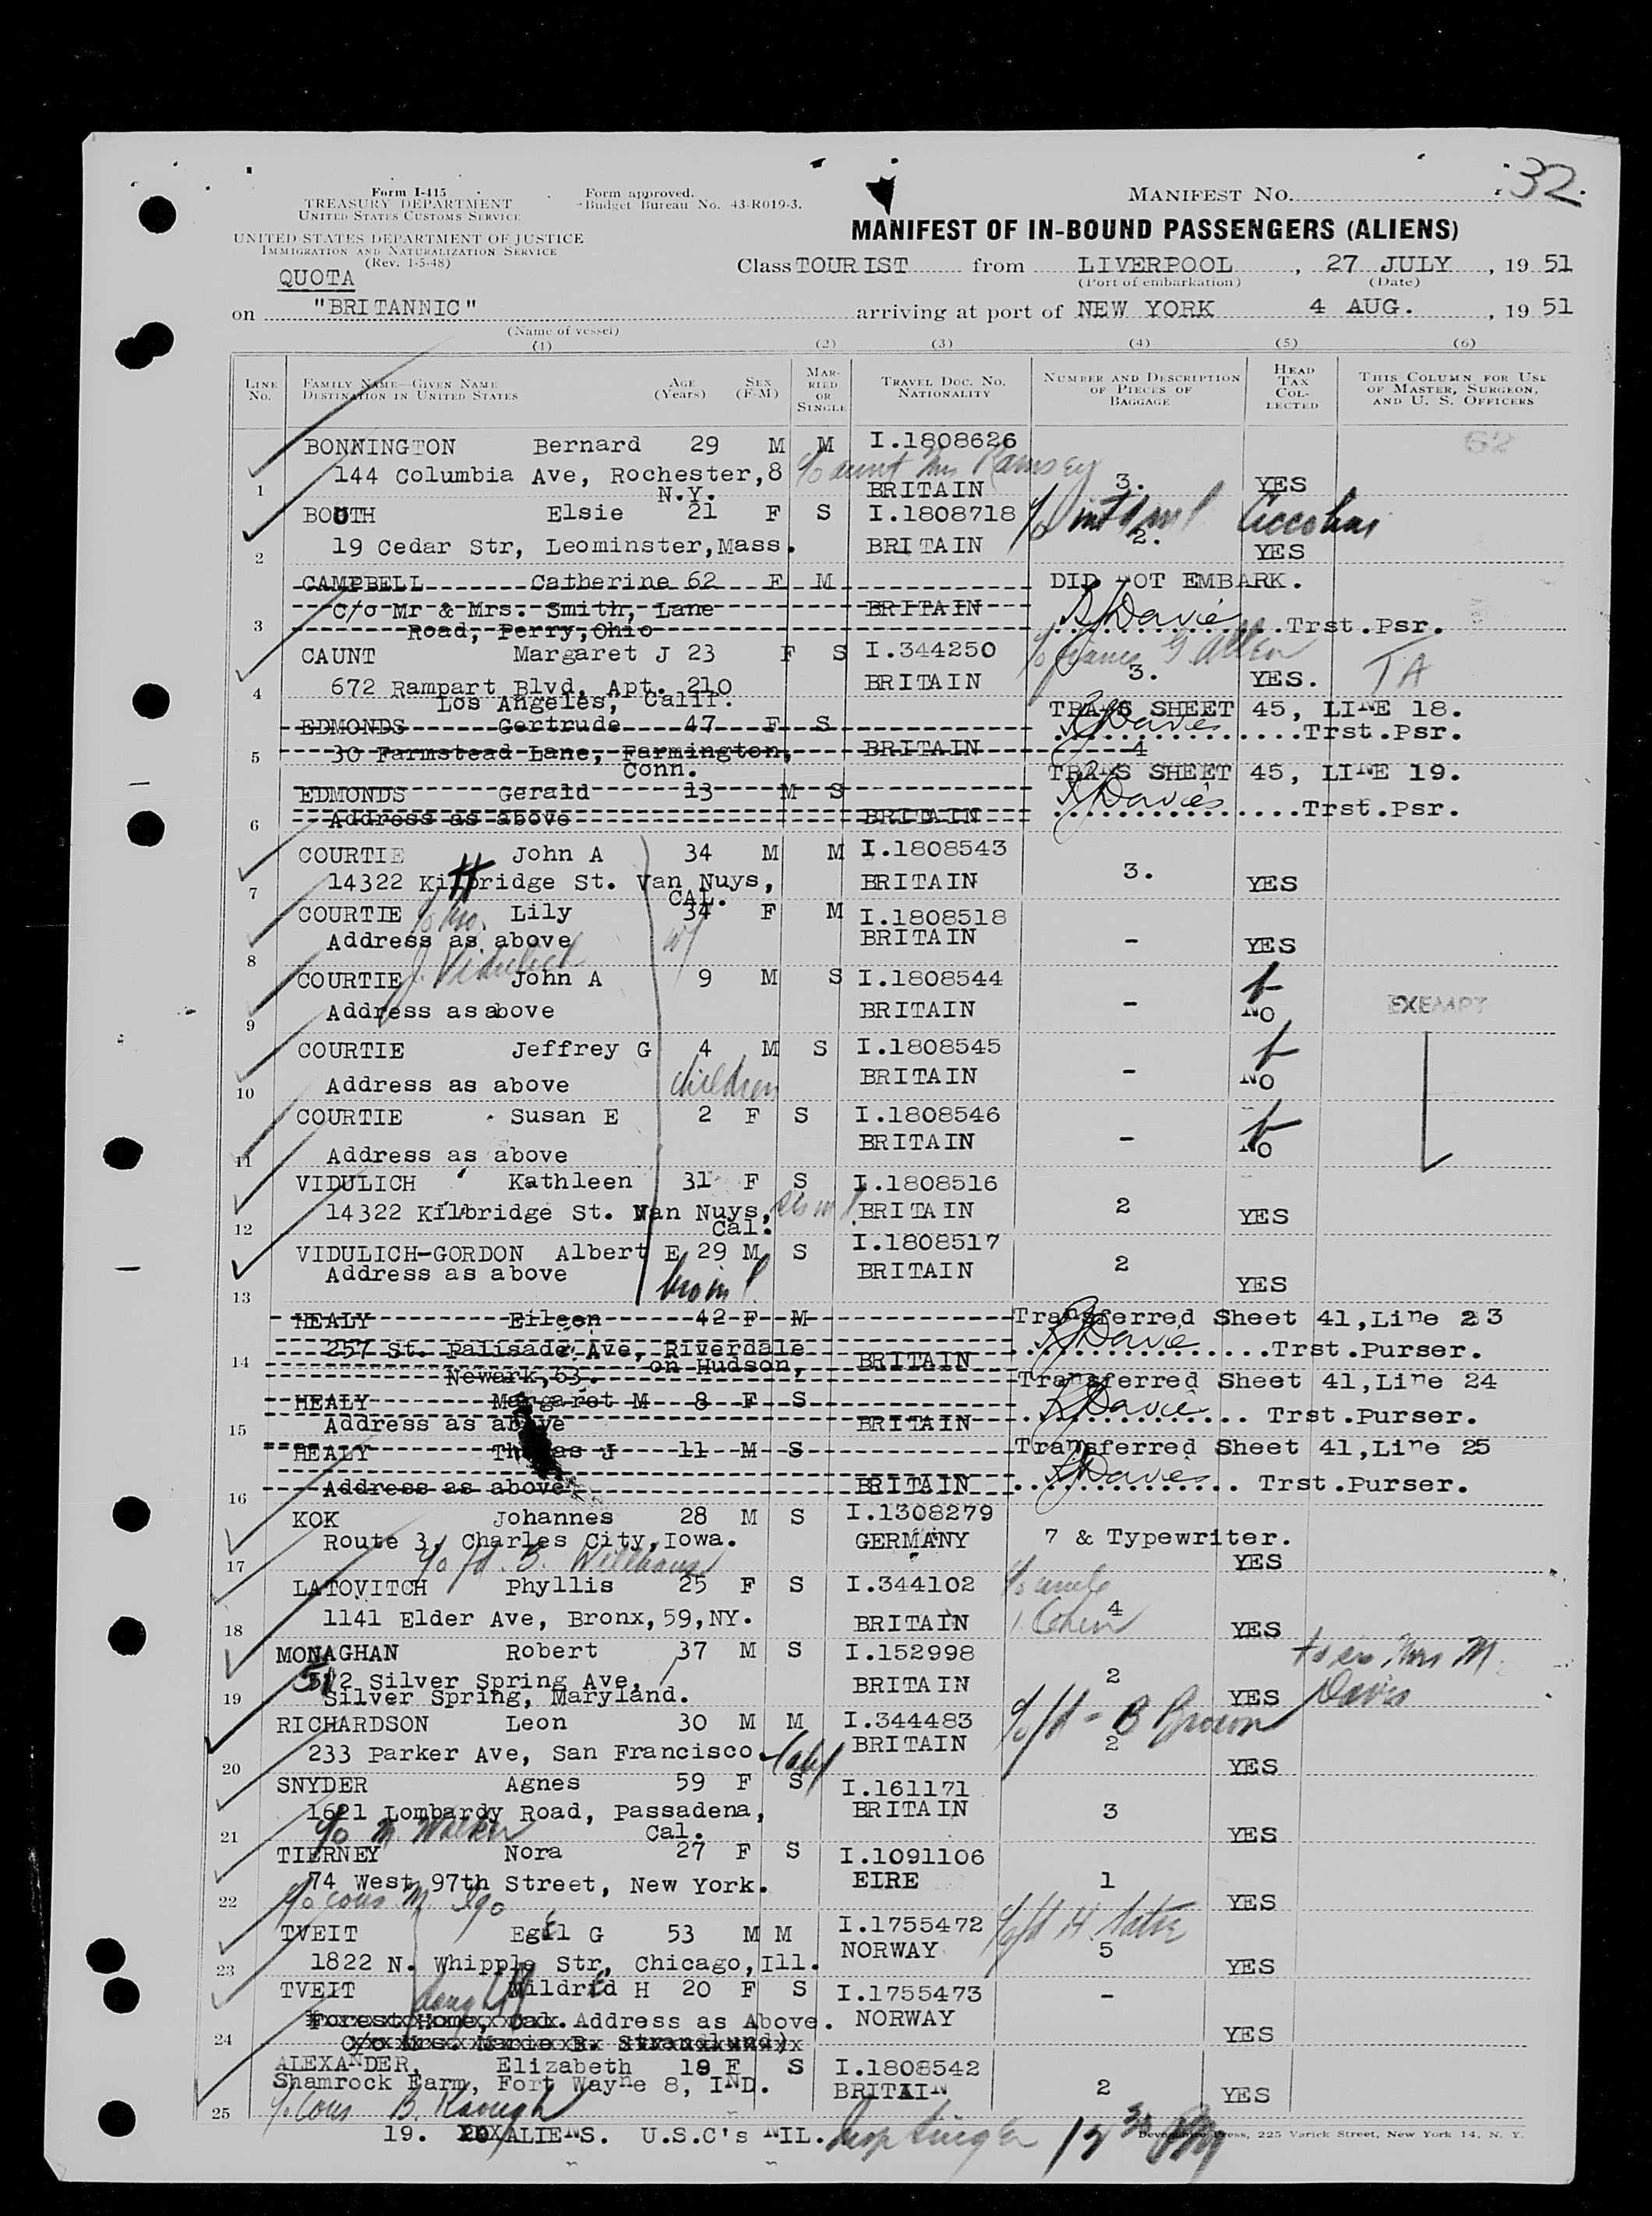 32
Form I-415
TREASURY DEPARTMENT
UNITED STATES CUSTOMS SERVICE
Form approved.
Budget Bureau No. 43-R019-3.
MANIFEST NO.
UNITED STATES DEPARTMENT OF JUSTICE
IMMIGRATION AND NATURALIZATION SERVICE
(Rev. 1-5-48)
MANIFEST OF IN-BOUND PASSENGERS (ALIENS)
QUOTA
Class TOURIST from LIVERPOOL, 27 JULY, 19 51
(Port of embarkation) (Date)
on "BRITANNIC" arriving at port of NEW YORK 4 AUG., 19 51
(Name of vessel)
(1) (2) (3) (4) (5) (6)
LINE NO. FAMILY NAME—GIVEN NAME DESTINATION IN UNITED STATES AGE (Years) SEX (F-M) MARRIED OR SINGLE TRAVEL DOC. NO. NATIONALITY NUMBER AND DESCRIPTION OF PIECES OF BAGGAGE HEAD TAX COLLECTED THIS COLUMN FOR USE OF MASTER, SURGEON, AND U. S. OFFICERS
BONNINGTON Bernard 29 M M I.1808626
144 Columbia Ave, Rochester,8 c/o aunt Mrs Ramsey
1 N.Y. BRITAIN 3. YES
BOUTH Elsie 21 F S I.1808718
2 19 Cedar Str, Leominster,Mass. BRITAIN 2. YES
CAMPBELL Catherine 62 F M DID NOT EMBARK.
C/o Mr & Mrs. Smith, Lane BRITAIN
3 Road, Perry,Ohio Davies Trst.Psr.
CAUNT Margaret J 23 F S I.344250 c/o James G Allen
4 672 Rampart Blvd, Apt. 210 BRITAIN 3. YES. TA
Los Angeles, Calif.
TRANS SHEET 45, LINE 18.
EDMONDS Gertrude 47 F S Davies Trst.Psr.
5 30 Farmstead Lane, Farmington, BRITAIN 4
Conn.
TRANS SHEET 45, LINE 19.
EDMONDS Gerald 13 M S Davies Trst.Psr.
6 Address as above BRITAIN
COURTIE John A 34 M M I.1808543
7 14322 Kittridge St. Van Nuys, BRITAIN 3. YES
CAL.
COURTIE Lily 34 F M I.1808518
8 Address as above BRITAIN - YES
c/o bro. J. Vidulich
COURTIE John A 9 M S I.1808544
9 Address as above BRITAIN - NO EXEMPT
COURTIE Jeffrey G 4 M S I.1808545
10 Address as above children BRITAIN - NO
COURTIE Susan E 2 F S I.1808546
11 Address as above BRITAIN - NO
VIDULICH Kathleen 31 F S I.1808516
12 14322 Kilbridge St. Van Nuys, BRITAIN 2 YES
Cal.
VIDULICH-GORDON Albert E 29 M S I.1808517
13 Address as above BRITAIN 2 YES
HEALY Eileen 42 F M Transferred Sheet 41,Line 23
257 St. Palisade Ave, Riverdale Davies Trst.Purser.
14 on Hudson, BRITAIN
Newark,63.
Transferred Sheet 41,Line 24
HEALY Margaret M 8 F S
15 Address as above BRITAIN Davies Trst.Purser.
HEALY Thomas J 11 M S Transferred Sheet 41,Line 25
16 Address as above BRITAIN Davies Trst.Purser.
KOK Johannes 28 M S I.1308279
17 Route 3, Charles City,Iowa. GERMANY 7 & Typewriter. YES
LATOVITCH Phyllis 25 F S I.344102 c/o uncle
18 1141 Elder Ave, Bronx,59,NY. BRITAIN 4 YES
I Cohen
MONAGHAN Robert 37 M S I.152998
19 512 Silver Spring Ave, BRITAIN 2 YES
Silver Spring, Maryland.
to sis Mrs M. Davis
RICHARDSON Leon 30 M M I.344483 c/o fd - B Brown
20 233 Parker Ave, San Francisco. Calif BRITAIN 2 YES
SNYDER Agnes 59 F S I.161171
21 1621 Lombardy Road, Passadena, BRITAIN 3 YES
c/o M. Walker Cal.
TIERNEY Nora 27 F S I.1091106
22 74 West 97th Street, New York. EIRE 1 YES
c/o cous M. Igo
TVEIT Egil G 53 M M I.1755472
23 1822 N. Whipple Str, Chicago,Ill. NORWAY 5 YES
TVEIT Mildrid H 20 F S I.1755473 -
Forest Home, Oak. Address as Above. NORWAY
24 C/o Mrs. Marie B. Strandlund) YES
ALEXANDER, Elizabeth 19 F S I.1808542
Shamrock Farm, Fort Wayne 8, IND. BRITAIN 2 YES
25 c/o Cous B. Keough
19. ALIENS. U.S.C's NIL.
225 Varick Street, New York 14, N. Y.